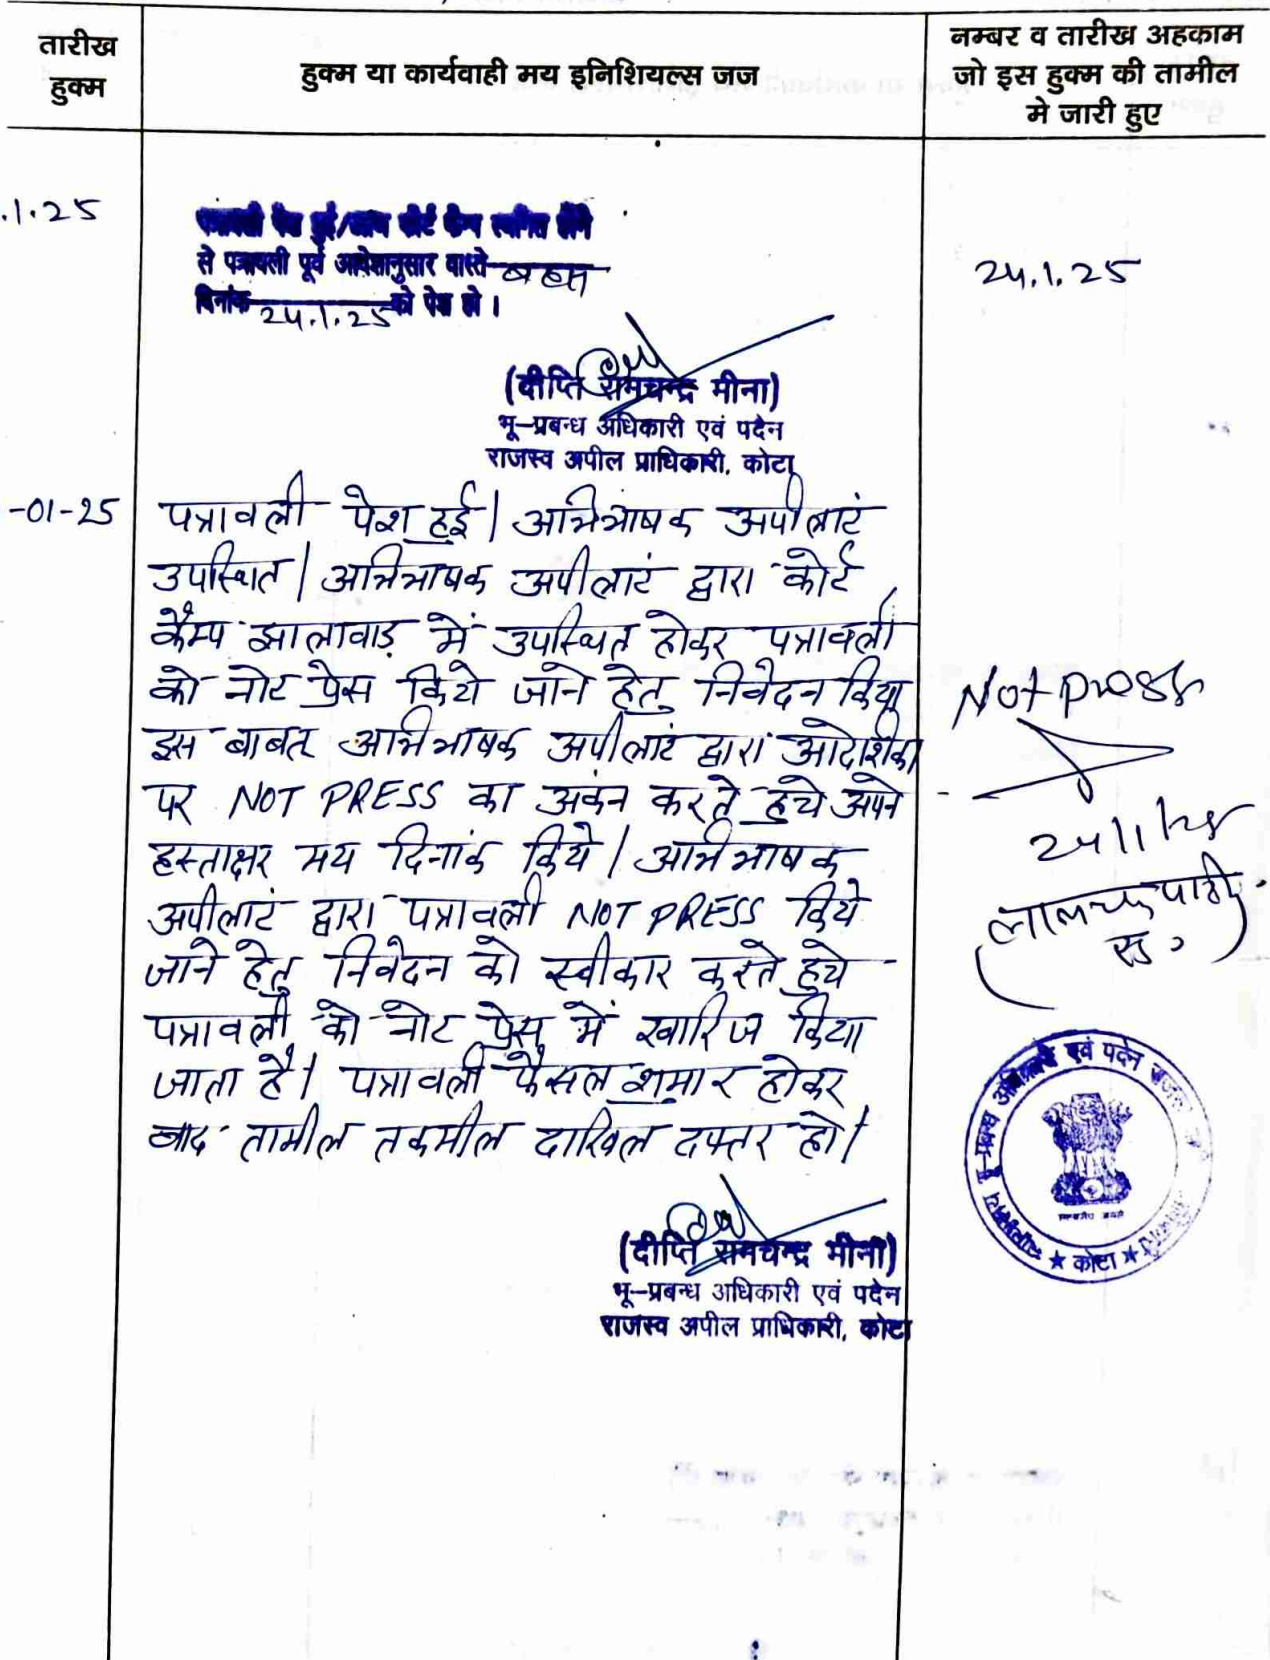 तारीख
हुक्म
हुक्म या कार्यवाही मय इनिशियल्स जज
नम्बर व तारीख अहकाम
जो इस हुक्म की तामील
मे जारी हुए
.1.25
पत्रावली पेश हुई/आज कोर्ट कैम्प स्थगित होने
से पत्रावली पूर्व आदेशानुसार वास्ते बहस
दिनांक 24.1.25 को पेश हो।
24.1.25
(दीप्ति रामचन्द्र मीना)
भू-प्रबन्ध अधिकारी एवं पदेन
राजस्व अपील प्राधिकारी, कोटा
-01-25
पत्रावली पेश हुई। अभिभाषक अपीलांट
उपस्थित। अभिभाषक अपीलांट द्वारा कोर्ट
कैम्प झालावाड़ में उपस्थित होकर पत्रावली
को नोट प्रेस किये जाने हेतु निवेदन किया
इस बाबत् अभिभाषक अपीलांट द्वारा आदेशिका
पर NOT PRESS का अंकन करते हुये अपने
हस्ताक्षर मय दिनांक किये। अभिभाषक
अपीलांट द्वारा पत्रावली NOT PRESS किये
जाने हेतु निवेदन को स्वीकार करते हुये
पत्रावली को नोट प्रेस में खारिज किया
जाता है। पत्रावली फैसल शुमार होकर
बाद तामील तकमील दाखिल दफ्तर हो।
Not press
24/1/25
(दीप्ति रामचन्द्र मीना)
भू-प्रबन्ध अधिकारी एवं पदेन
राजस्व अपील प्राधिकारी, कोटा
भू-प्रबन्ध अधिकारी एवं पदेन
★ कोटा ★